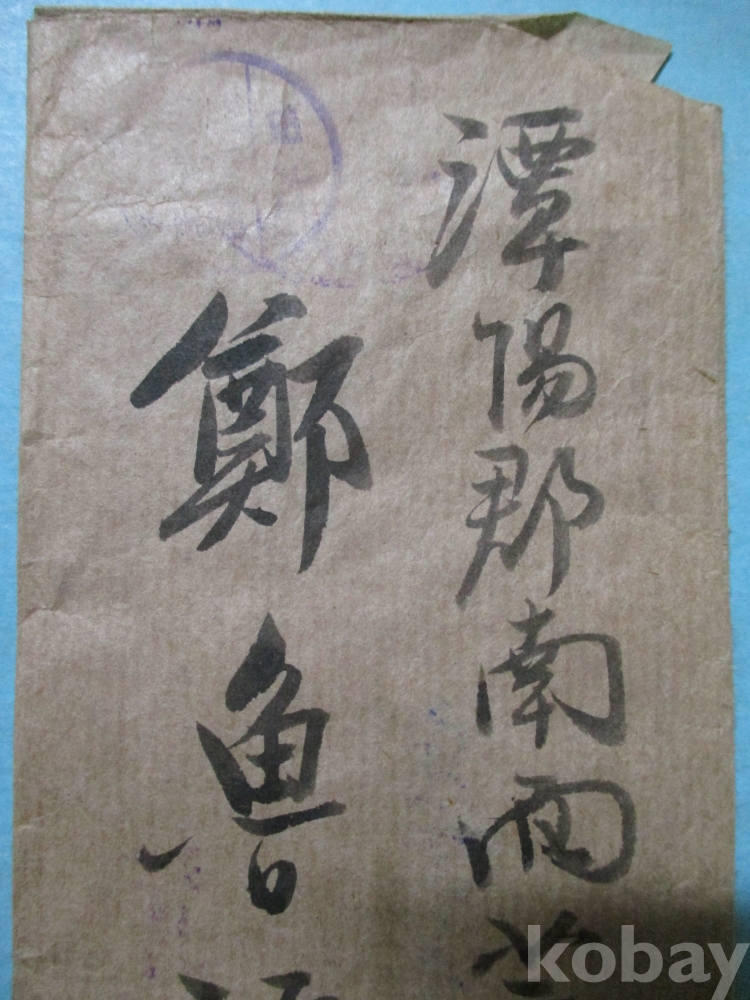 潭陽郡南面
鄭魯
kobay